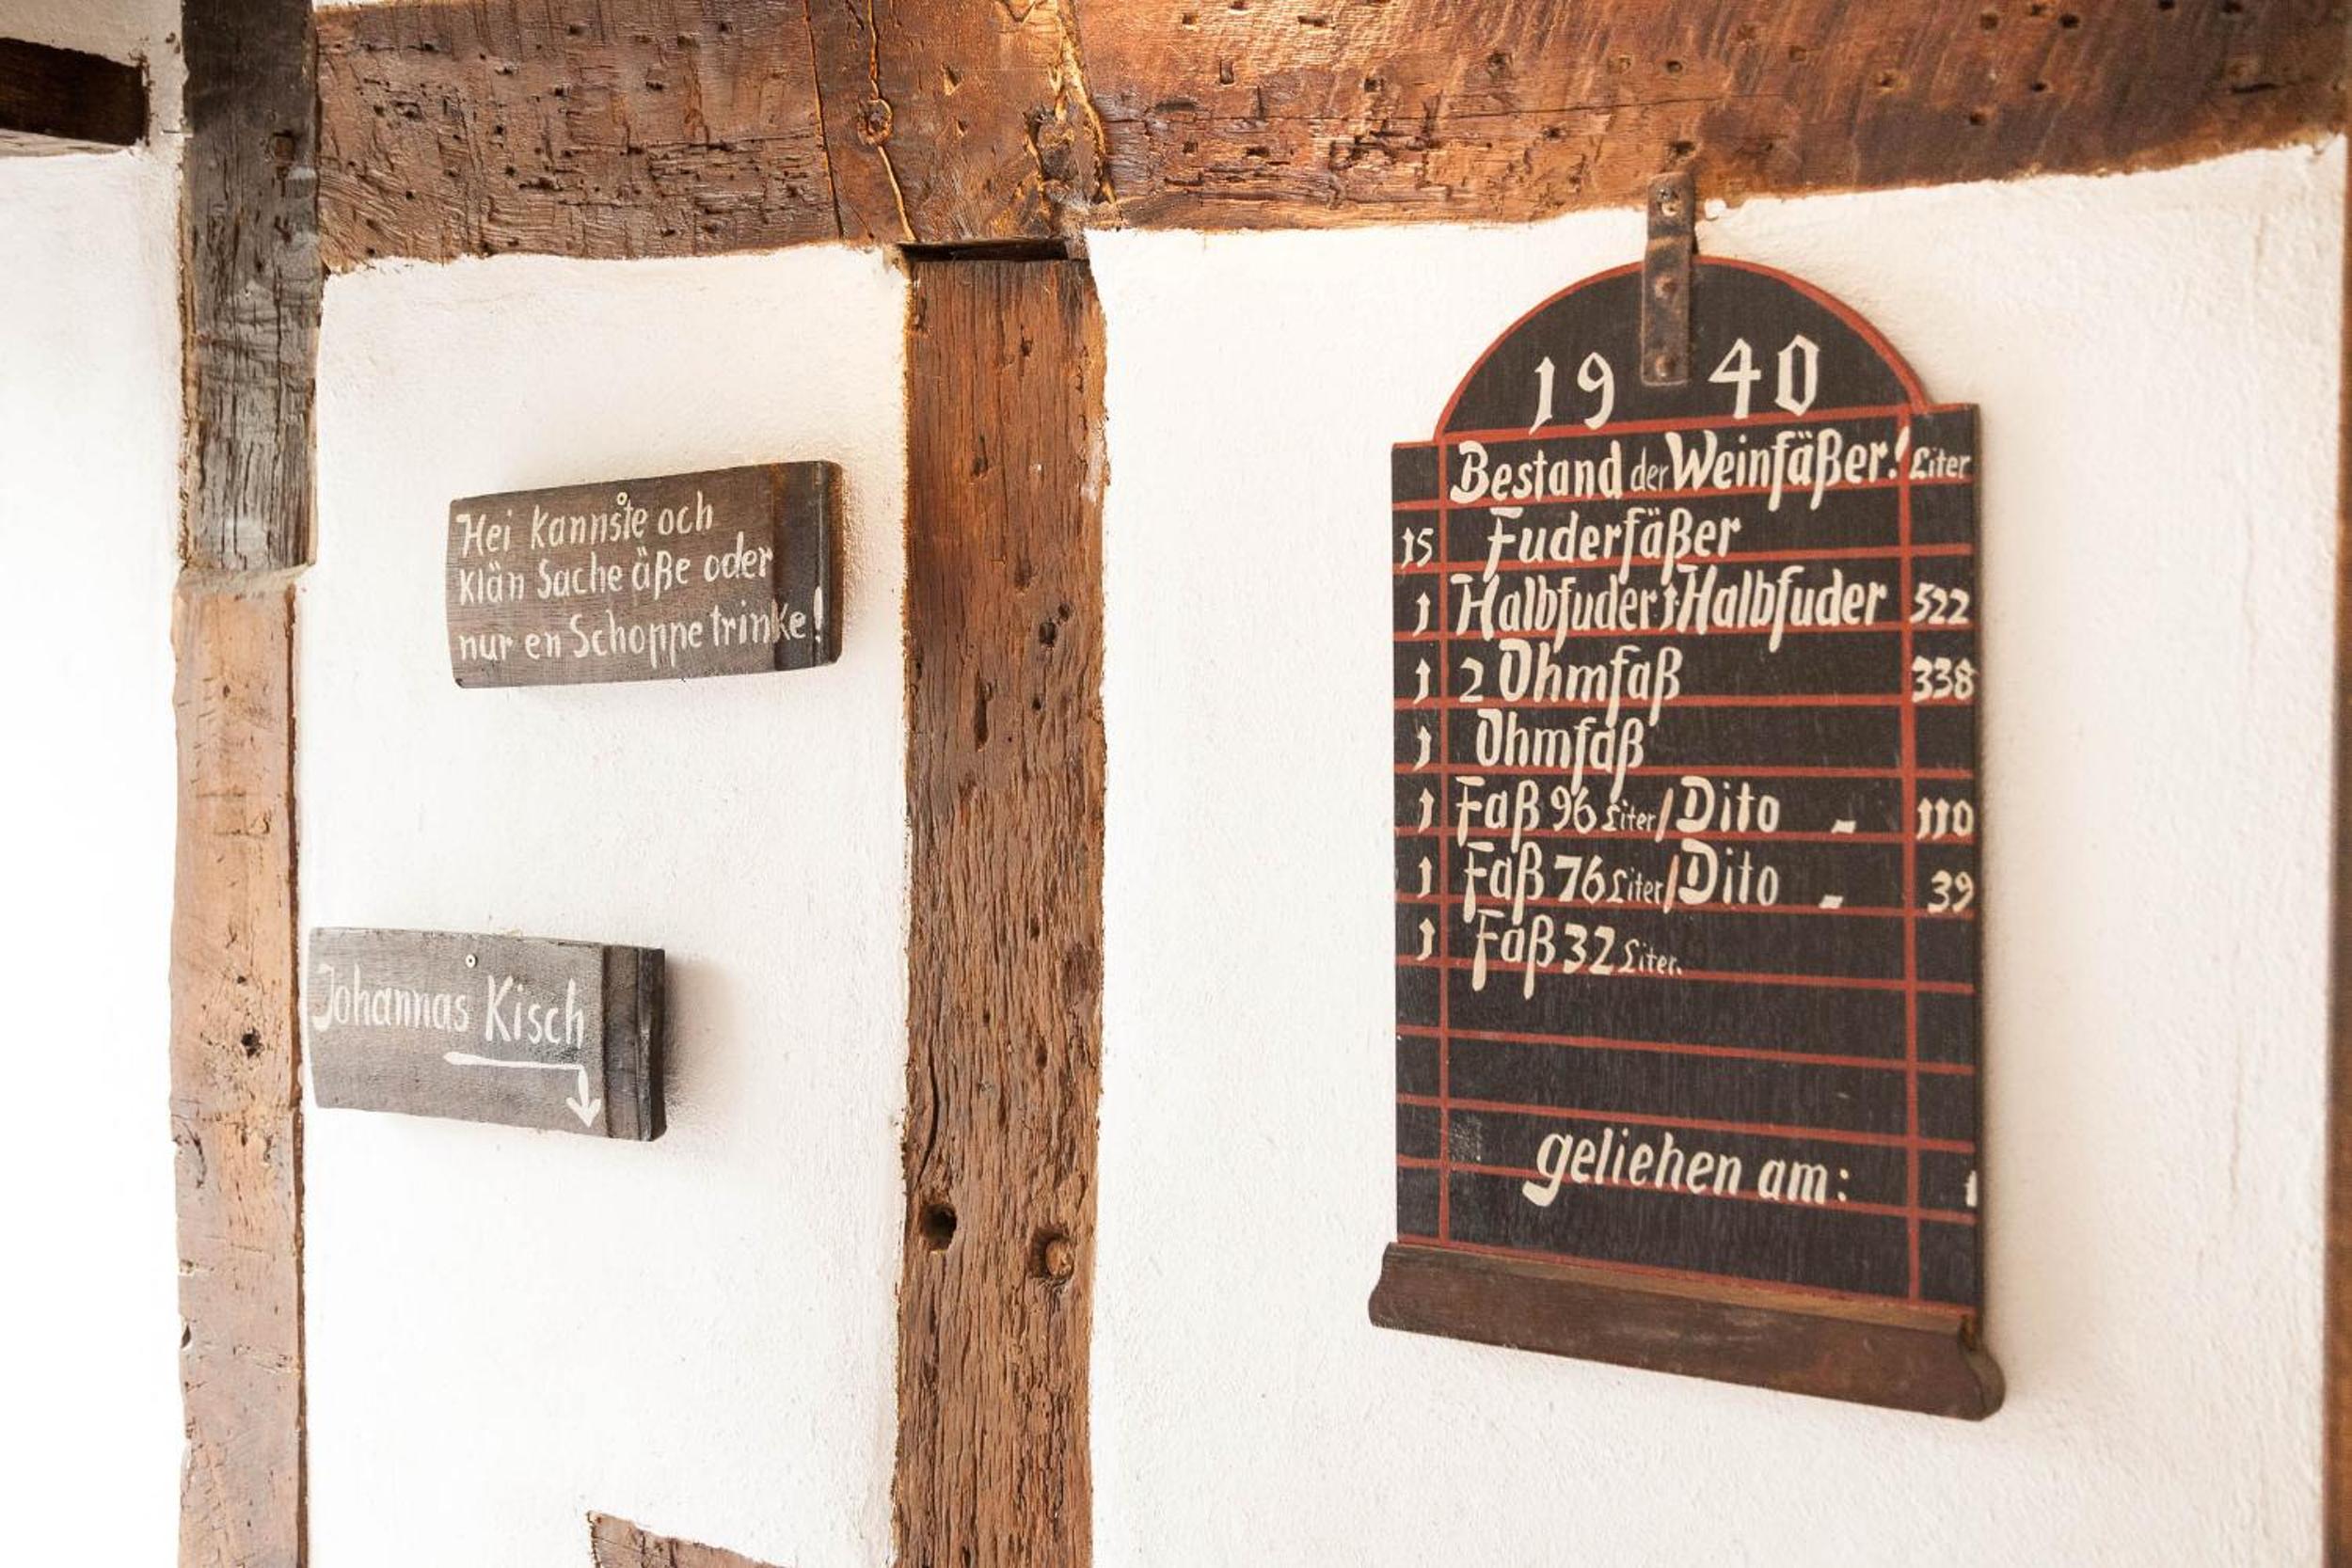 Hei kannste och
klän Sache äße oder
nur en Schoppe trinke!
Johannas Kisch
19 40
Bestand der Weinfäßer! Liter
15 Fuderfäßer
1 Halbfuder 1 Halbfuder 522
1 2 Ohmfaß 338
1 Ohmfaß
1 Faß 96 Liter / Dito - 110
1 Faß 76 Liter / Dito - 39
1 Faß 32 Liter.
geliehen am: 1